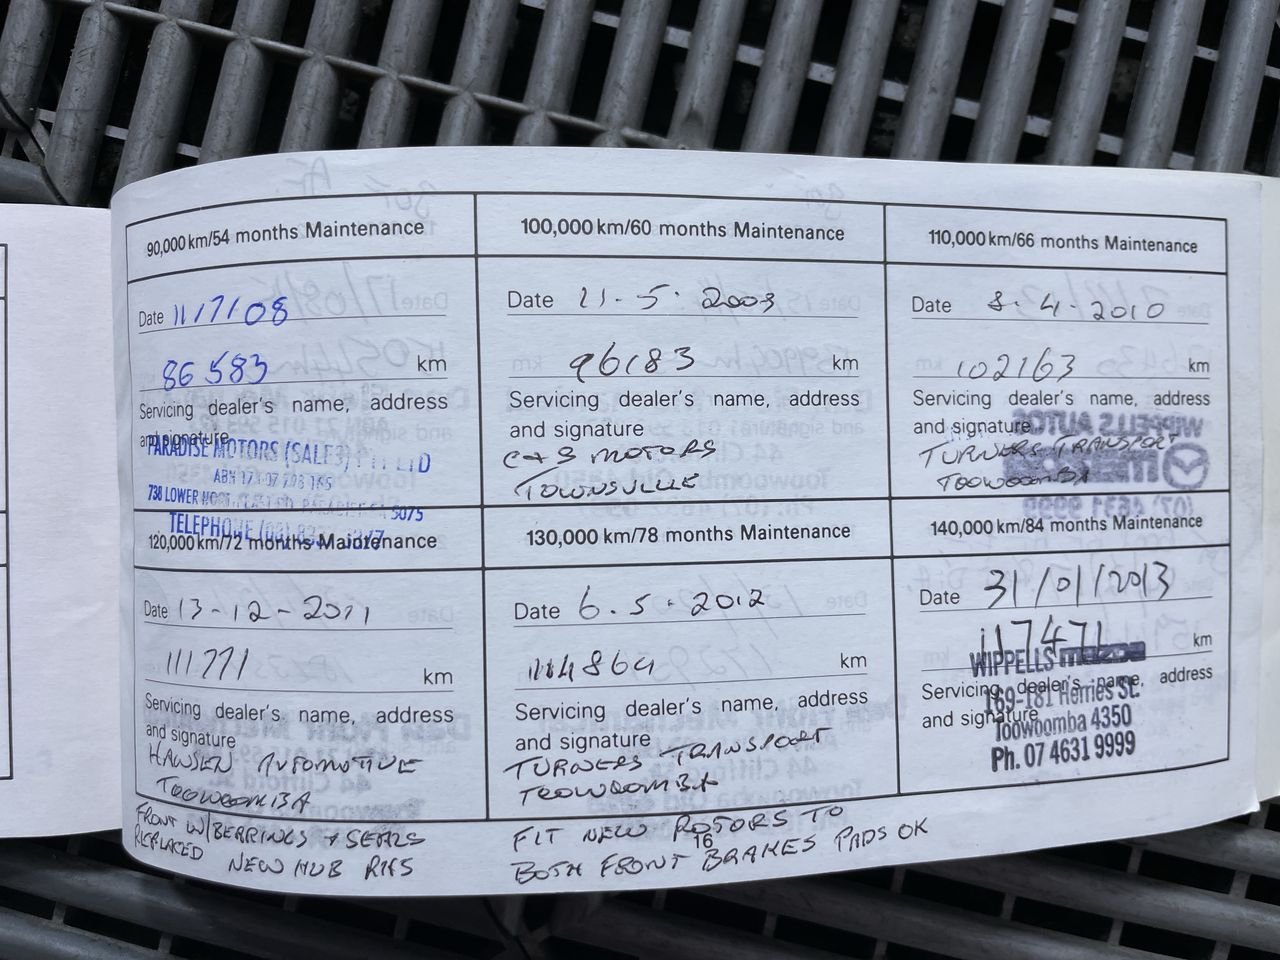 90,000 km/54 months Maintenance
Date 11/7/08
86 583 km
Servicing dealer's name, address
and signature
PARADISE MOTORS (SALES) PTY LTD
738 LOWER 5075
TELEPHONE (08)
100,000 km/60 months Maintenance
Date 21-5-2009
96183 km
Servicing dealer's name, address
and signature
C & S MOTORS
TOWNSVILLE
110,000 km/66 months Maintenance
Date 8-4-2010
102163 km
Servicing dealer's name, address
and signature
TURNERS TRANSPORT
TOOWOOMBA
120,000 km/72 months Maintenance
Date 13-12-2011
111771 km
Servicing dealer's name, address
and signature
HANSEN AUTOMOTIVE
TOOWOOMBA
FRONT W/BERRINGS + SEALS
REPLACED NEW HUB RHS
130,000 km/78 months Maintenance
Date 6.5.2012
114864 km
Servicing dealer's name, address
and signature
TURNERS TRANSPORT
TOOWOOMBA
FIT NEW ROTORS TO
BOTH FRONT BRAKES PADS OK
140,000 km/84 months Maintenance
Date 31/01/2013
117471 km
WIPPELLS mazda
Servicing dealer's name, address
and signature
169-181 Herries St.
Toowoomba 4350
Ph. 07 4631 9999
16